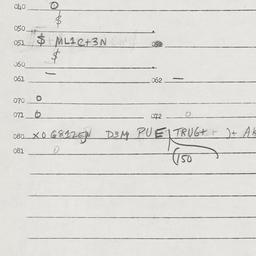 040 0
$
050
051 $ ML1C+3N 059
$
060
061 — 062 —
070 0
071 0 072 0
080 X0 G812EN D3M PUE TRUG+ + )+ AK
081 0 150